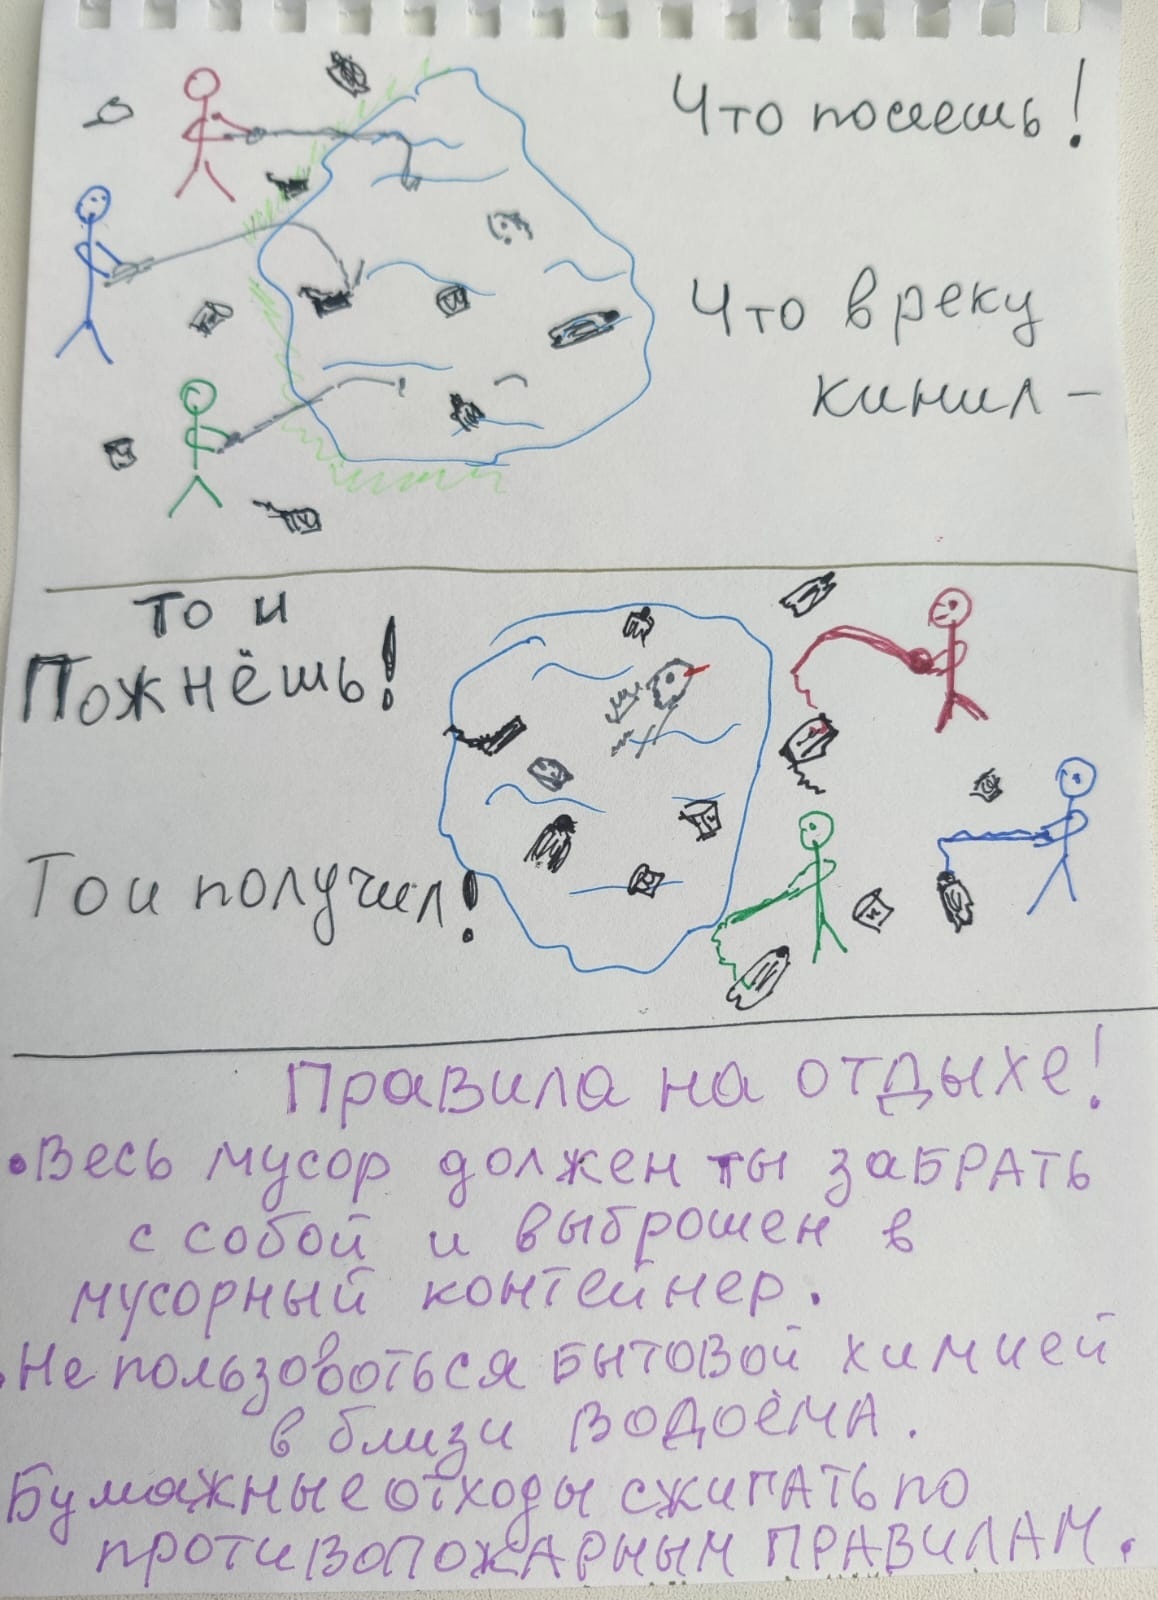 Что посеешь!
Что в реку
кинил -
То и
Пожнёшь!
То и получил!
Правила на отдыхе!
• Весь мусор должен ты забРАТЬ
с собой и выброшен в
мусорный контейнер.
• Не пользовоться БЫТОВОЙ химией
в близи ВОДОёМА.
Бумажные отходы сжипАТЬ по
противопожАРным ПРАВИЛАМ.